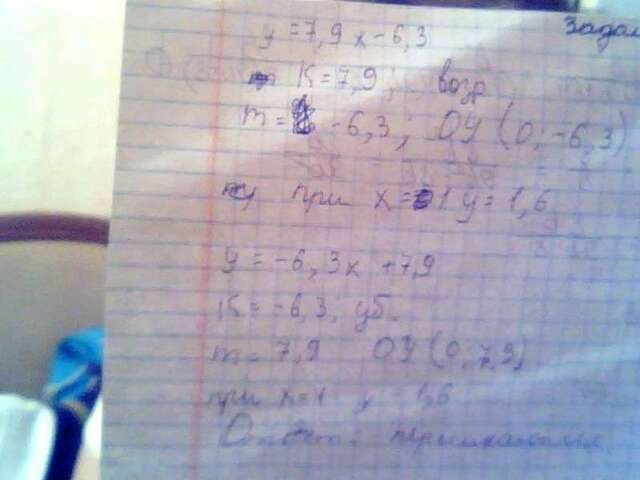 Задан
y = 7,9 x - 6,3
K = 7,9; возр
m = -6,3; OY (0; -6,3)
при x = 1 y = 1,6
y = -6,3x + 7,9
K = -6,3; уб.
m = 7,9 OY (0; 7,9)
при x = 1 y = 1,6
Ответ: